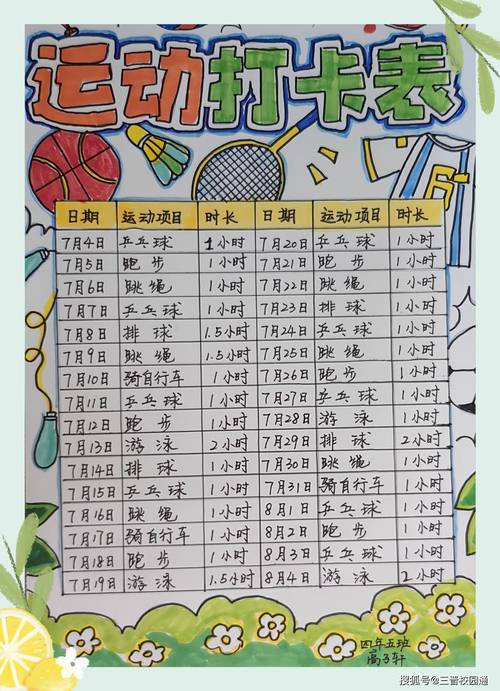 运动打卡表
日期 运动项目 时长 日期 运动项目 时长
7月4日 乒乓球 1小时 7月20日 乒乓球 1小时
7月5日 跑步 1小时 7月21日 跑步 1小时
7月6日 跳绳 1小时 7月22日 跳绳 1小时
7月7日 乒乓球 1小时 7月23日 排球 1小时
7月8日 排球 1.5小时 7月24日 乒乓球 1小时
7月9日 跳绳 1.5小时 7月25日 跳绳 1小时
7月10日 骑自行车 1小时 7月26日 跑步 1小时
7月11日 乒乓球 1小时 7月27日 乒乓球 1小时
7月12日 跑步 1小时 7月28日 游泳 1小时
7月13日 游泳 2小时 7月29日 排球 2小时
7月14日 排球 1小时 7月30日 跳绳 1小时
7月15日 乒乓球 1小时 7月31日 骑自行车 1小时
7月16日 跳绳 1小时 8月1日 乒乓球 1小时
7月17日 骑自行车 1小时 8月2日 跑步 1小时
7月18日 跑步 1小时 8月3日 乒乓球 1小时
7月19日 游泳 1.5小时 8月4日 游泳 2小时
四年五班
高子轩
搜狐号@三晋校园通